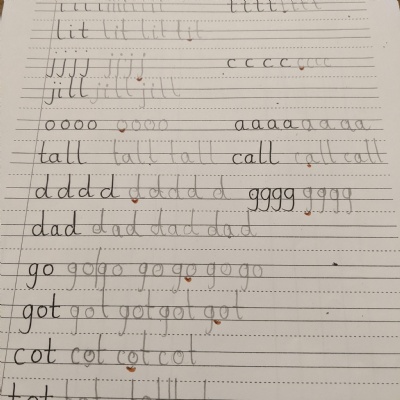 llll tttt
lit lit lit lit
jjjj jjjj cccc cccc
jill jill jill
oooo oooo aaaa aaaa
tall tall tall call call call
dddd ddddd gggg gggg
dad dad dad dad
go go go go go go go
got got got got got
cot cot cot cot